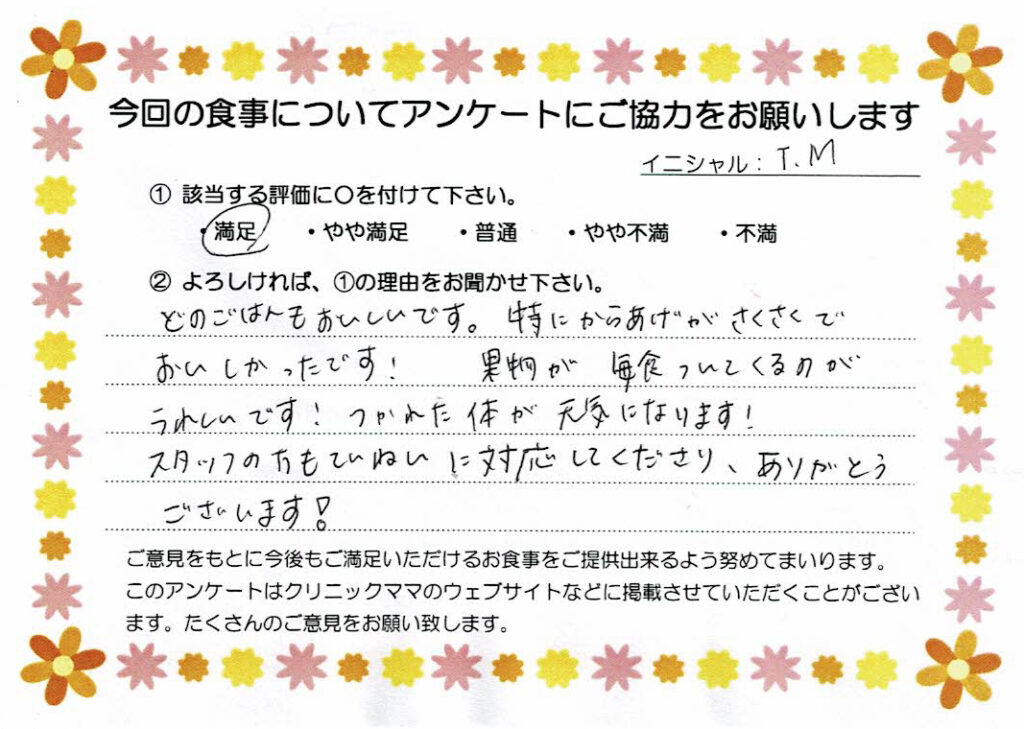 今回の食事についてアンケートにご協力をお願いします
イニシャル：T.M
① 該当する評価に〇を付けて下さい。
・満足 ・やや満足 ・普通 ・やや不満 ・不満
② よろしければ、①の理由をお聞かせ下さい。
どのごはんもおいしいです。特にからあげがさくさくで
おいしかったです! 果物が毎食ついてくるのが
うれしいです! つかれた体が元気になります!
スタッフの方もていねいに対応してくださり、ありがとう
ございます!
ご意見をもとに今後もご満足いただけるお食事をご提供出来るよう努めてまいります。
このアンケートはクリニックママのウェブサイトなどに掲載させていただくことがござい
ます。たくさんのご意見をお願い致します。